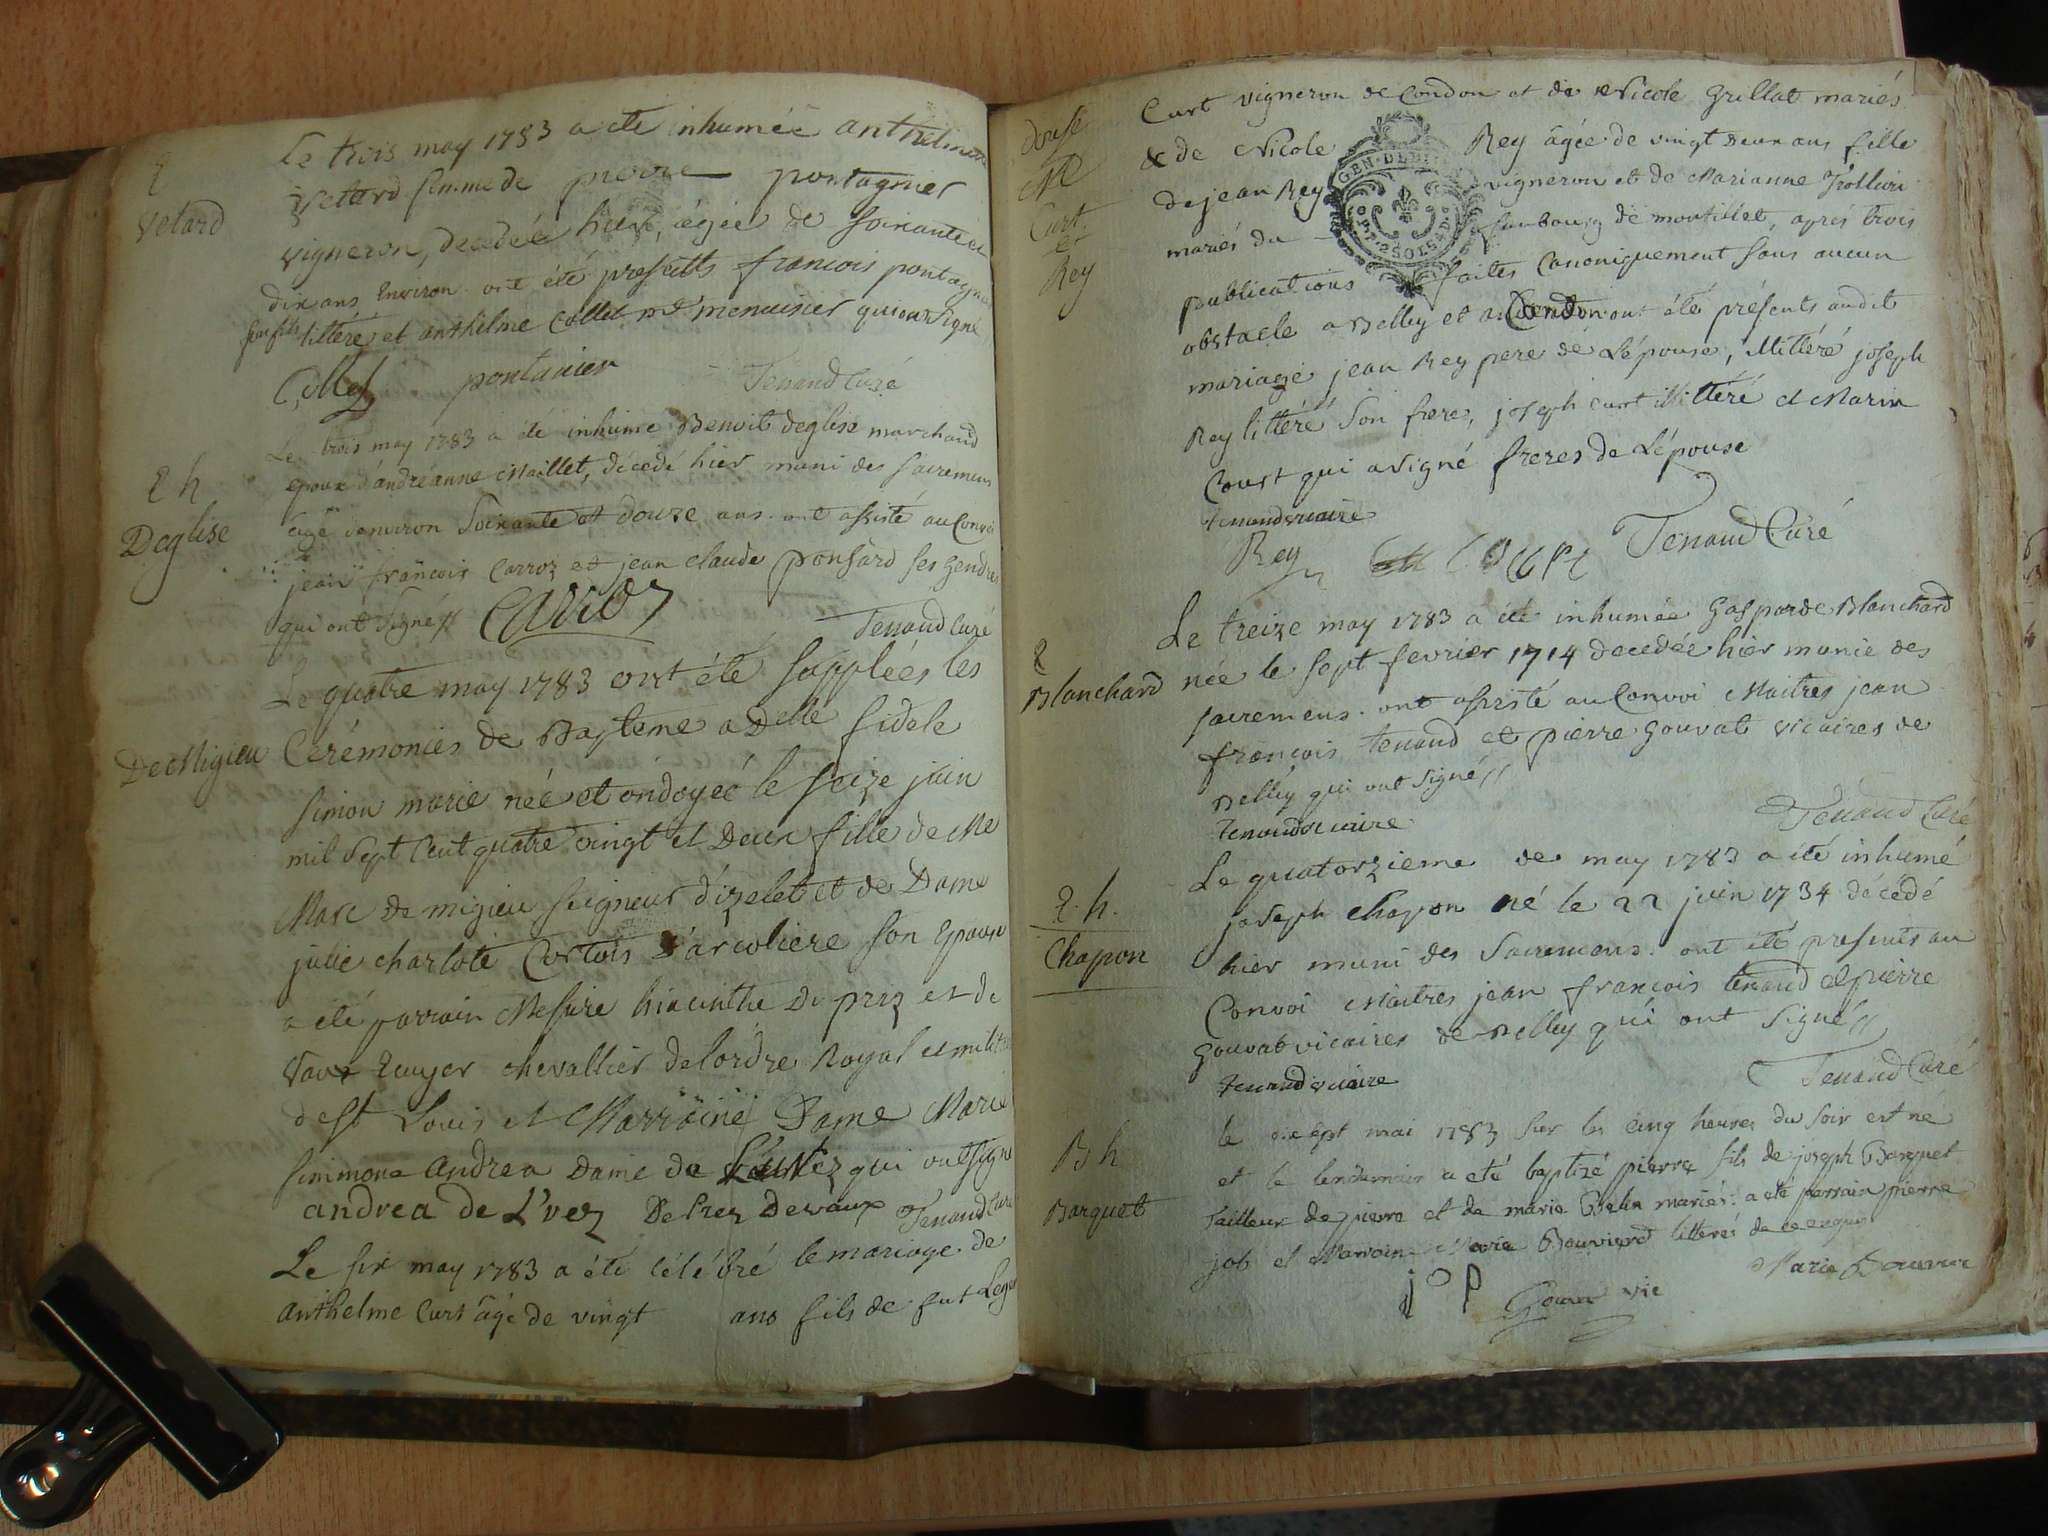 Velard
Le trois may 1783 a été inhumée anthelmette
Velard femme de pierre pontagnier
vigneron, decedée hier, agée de soixante et
dix ans Environ ont été presents francois pontagnier
son fils littéré et anthelme Collet md menuisier qui ont signé
Collet pontanier Tenand Curé
E h
Deglise
Le trois may 1783 a été inhumé Benoit deglise marchand
epoux d'andréanne Maillet, décedé hier muni des sacremens
agé d'environ Soixante et douze ans ont assisté au Convoi
jean francois Carroz et jean claude ponsard ses gendres
qui ont signé // Carroz Tenand Curé
De Migieu
Le quatre may 1783 ont été supplées les
Cerémonies de Bapteme a Delle fidele
simon marie née et ondoyée le seize juin
mil sept Cent quatre vingt et Deux fille de Me
Marc de migieu seigneur d'izelet et de Dame
julie charlote Cortois d'arcoliere son Epouse
a été parrain Messire hiacinthe De prez et de
Vaux Ecuyer chevallier de l'ordre Royal et militaire
de St Louis et Marraine Dame Marie
simmone andrea Dame de qui ont signé
andrea de L'vez De Prez Devaux Tenand Curé
Le six may 1783 a été célébré le mariage de
Anthelme Curt âgé de vingt ans fils de fut Leger
Curt
et
Rey
Curt vigneron de Condon et de Nicole Grillat mariés
& de Nicole Rey âgée de vingt Deux ans fille
de jean Rey vigneron et de Marianne Trollieu
mariés du faubourg de montillet, aprés trois
GEN. DE DI
publications faites Canoniquement sans aucun
obstacle a Belley et a Condon ont été présents audit
mariage jean Rey pere de L'épouse, illitéré joseph
Rey littéré son frere, joseph curt illittéré et Marin
Court qui a signé freres de L'épouse
tenand vicaire
Rey Tenand Curé
Blanchard
Le treize may 1783 a été inhumée Gasparde Blanchard
née le sept fevrier 1714 decedée hier munie des
sacremens. ont assisté au Convoi Maitres jean
francois tenand et pierre Gouvat vicaires de
Belley qui ont signé //
tenand vicaire Tenand Curé
E. h.
Chapon
Le quatorzieme de may 1783 a été inhumé
joseph Chapon né le 22 juin 1734 décédé
hier muni des Sacremens. ont été presents au
Convoi Maitres jean francois tenand et pierre
Gouvat vicaires de Belley qui ont signé //
tenand vicaire Tenand Curé
B h
Barquet
le mai 1783 sur les cinq heures du soir est né
et le lendemain a été baptizé pierre fils de joseph Barquet
tailleur de pierre et de marie mariés: a été parrain pierre
job et Marraine Marie Bouvierd litterés de ce enquis
jop Gouvat vic Marie Bouvier